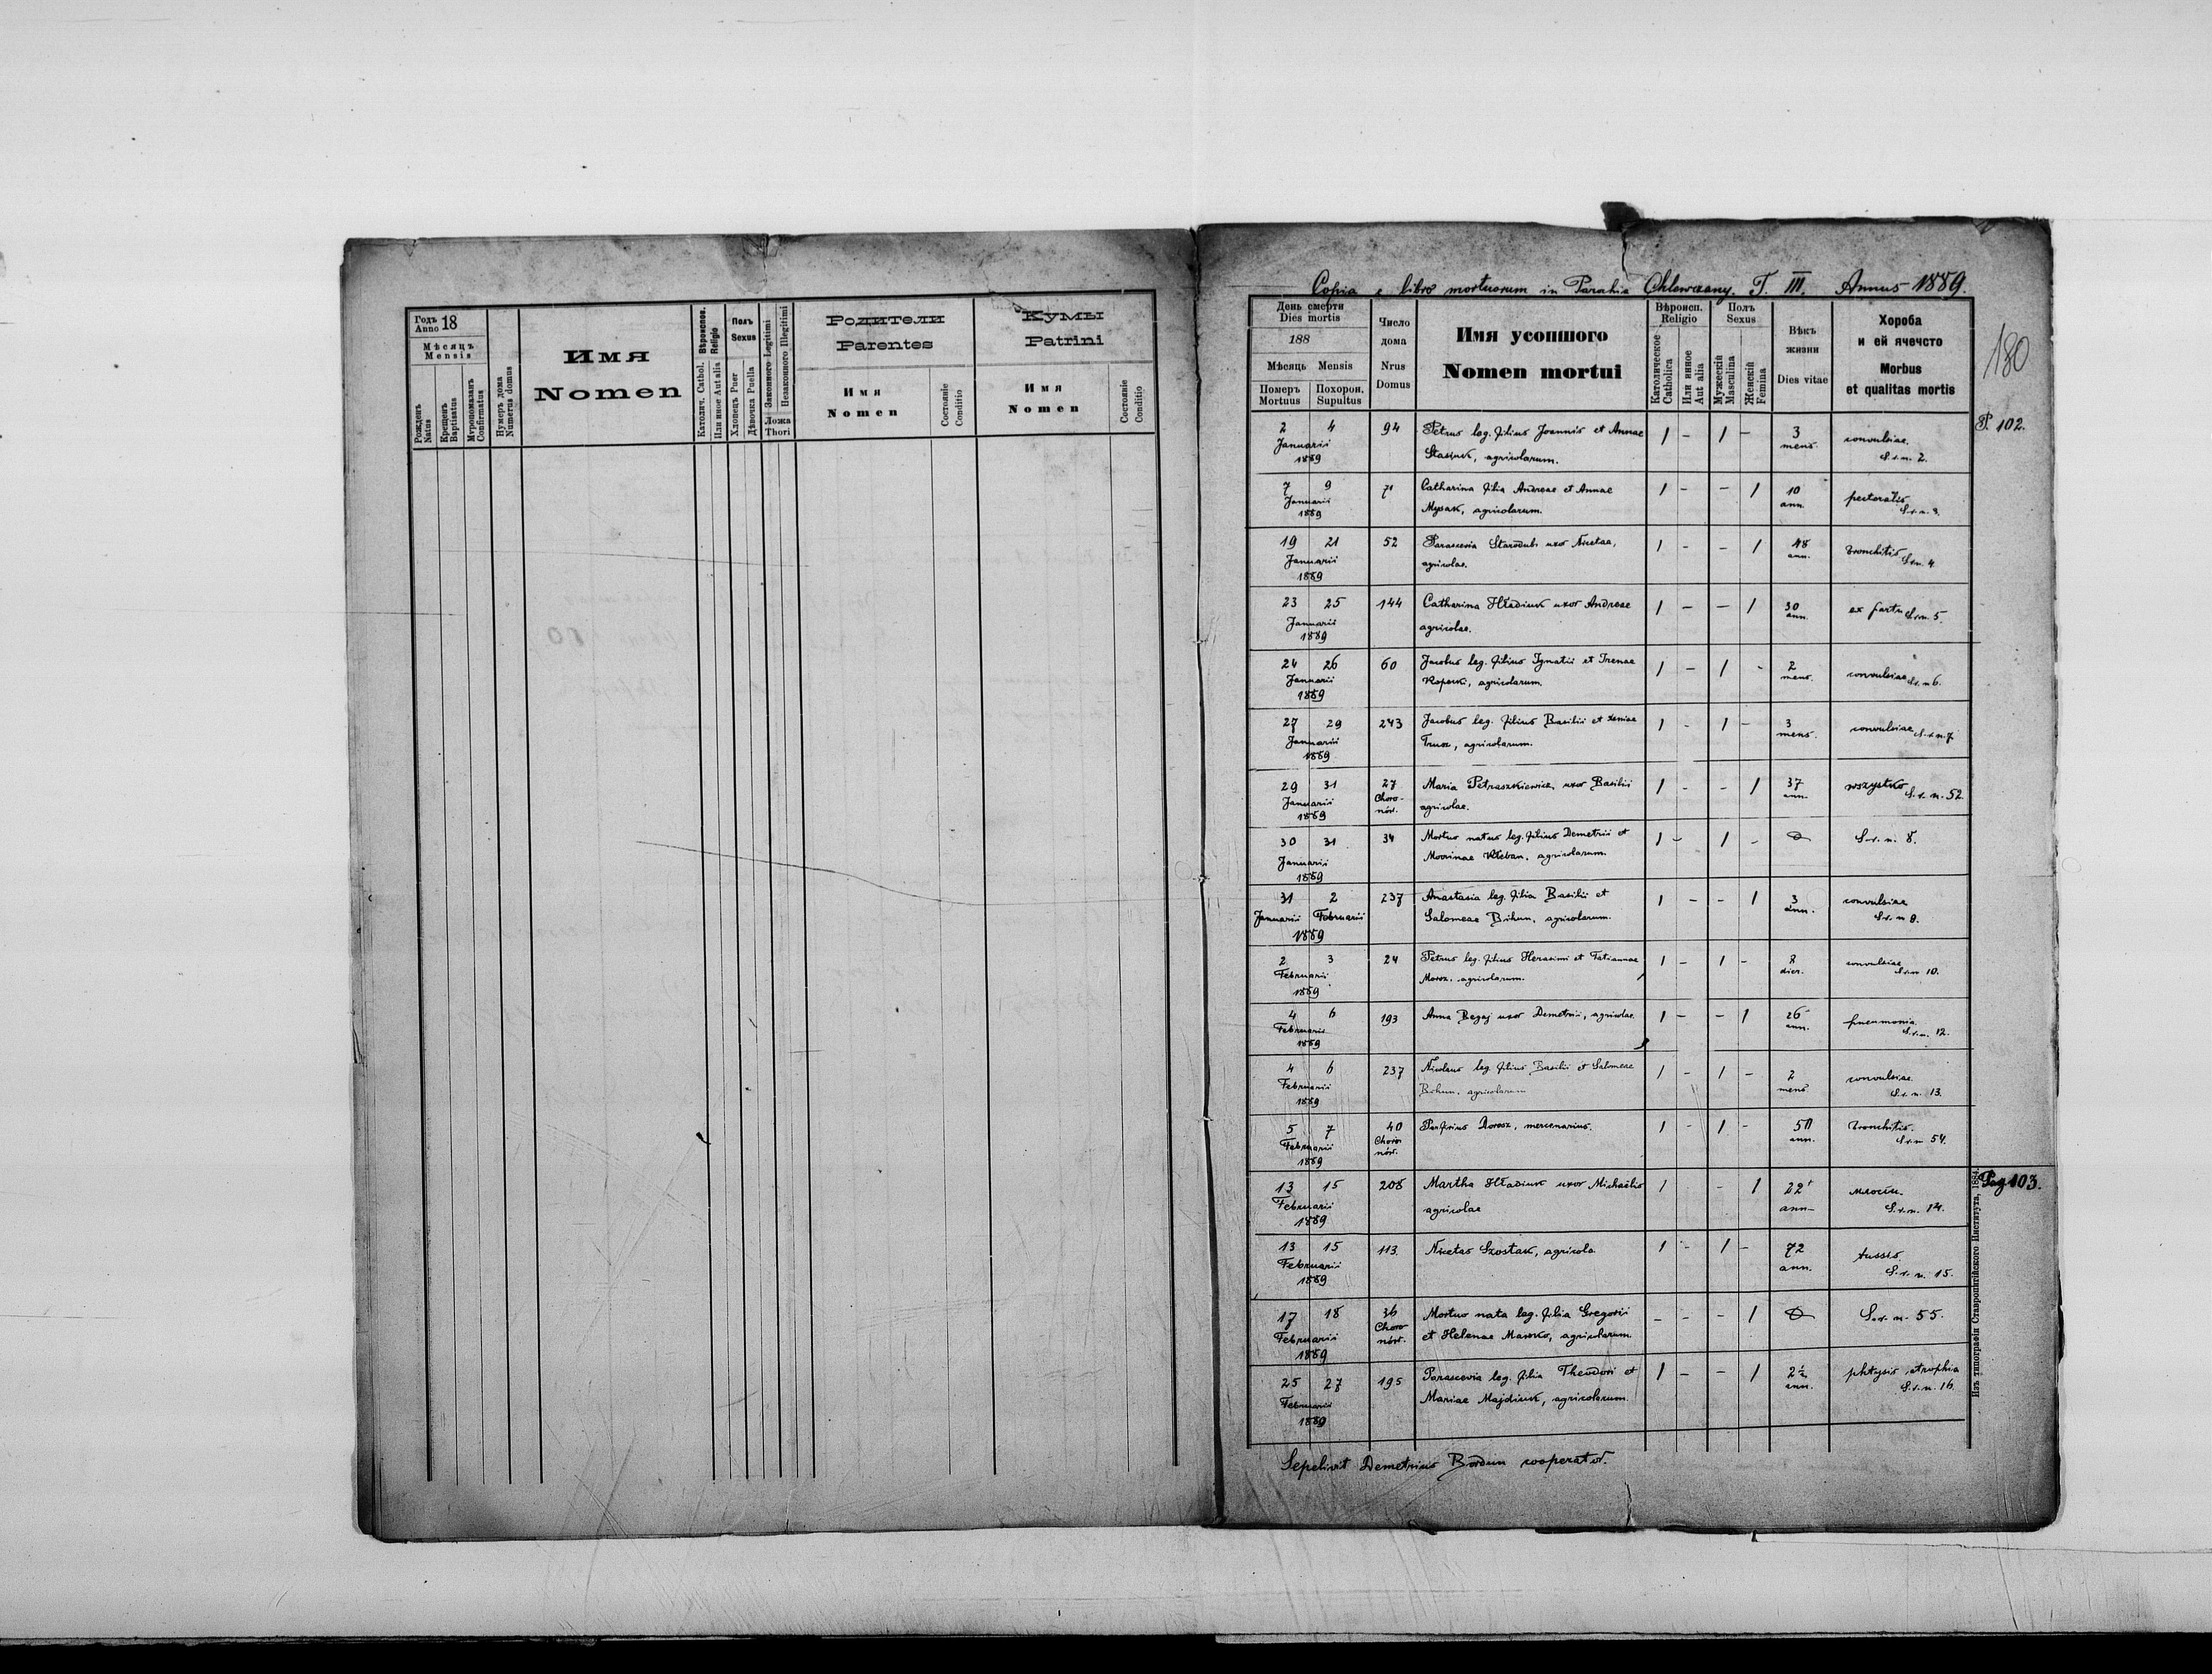 Годъ
Anno 18
Мѣсяцъ
Mensis
Рожденъ
Natus
Крещенъ
Baptisatus
Мѵропомазанъ
Confirmatus
Нумеръ дома
Numerus domus
Имя
Nomen
Вѣроиспов.
Religio
Католич. Cathol.
Или иное Aut alia
Полъ
Sexus
Хлопець Puer
Дѣвочка Puella
Законного Legitimi
Незаконного Illegitimi
Ложа
Thori
Родители
Parentes
Имя
Nomen
Состояніе
Conditio
Кумы
Patrini
Имя
Nomen
Состояніе
Conditio
Copia e libro mortuorum in Parochia Chlewczany. T. III. Annus 1889.
180
День смерти
Dies mortis
188
Мѣсяць Mensis
Померъ
Mortuus
Похорон.
Supultus
Число
дома
Nrus
Domus
Имя усопшого
Nomen mortui
Вѣроисп.
Religio
Католическое
Catholica
Или инное
Aut alia
Полъ
Sexus
Мужескій
Masculina
Женскій
Femina
Вѣкъ
жизни
Dies vitae
Хороба
и ей ячество
Morbus
et qualitas mortis
P. 102.
2 4 94 Petrus leg. filius Joannis et Annae 1 - 1 - 3 convulsiae.
Januarii Stasiuk, agricolarum. mens. S.s.n. 2.
1889
7 9 71 Catharina filia Andreae et Annae 1 - - 1 10 pectoralis
Januarii Mysak, agricolarum. ann. S.s.n. 3.
1889
19 21 52 Parascevia Starodub uxor Nicetae, 1 - - 1 48 bronchitis
Januarii agricolae. ann. S.s.n. 4
1889
23 25 144 Catharina Hładiuk uxor Andreae 1 - - 1 30 ex partu S.s.n. 5.
Januarii agricolae. ann.
1889
24 26 60 Jacobus leg. filius Ignatii et Irenae 1 - 1 - 2 convulsiae S.s.n. 6.
Januarii agricolarum. mens.
1889
27 29 243 Jacobus leg. filius Basilii et Xeniae 1 - 1 - 3 convulsiae S.s.n. 7
Januarii agricolarum. mens.
1889
29 31 27 Maria Petraszkiewicz, uxor Basilii 1 - - 1 37 wszystko S.s.n. 52
Januarii Choro- agricolae. ann.
1889 nów.
30 31 34 Mortuo natus leg. filius Demetrii et 1 - 1 - S.s.n. 8.
Januarii Kleban, agricolarum.
1889
31 2 237 Anastasia leg. filia Basilii et 1 - - 1 3 convulsiae
Januarii Februarii Salomeae Bihun, agricolarum. ann. S.s.n. 9.
1889
2 3 24 Petrus leg. filius Herasimi et Tatiannae 1 - 1 - 8 convulsiae
Februarii Moroz, agricolarum. dier. S.s.n. 10.
1889
4 6 193 Anna Begaj uxor Demetrii, agricolae. 1 - - 1 26 pneumonia
Februarii ann. S.s.n. 12.
1889
4 6 237 Nicolaus leg. filius Basilii et Salomeae 1 - 1 - 2 convulsiae
Februarii Bihun, agricolarum mens. S.s.n. 13.
1889
5 7 40 mercenarius. 1 - 1 - bronchitis.
Februarii Choro ann. S.s.n. 54.
1889 nów.
Pag 103.
13 15 208 Martha Hładiuk uxor Michaëlis 1 - 1 22
Februarii agricolae ann. S.s.n. 14.
1889
13 15 113. Nicetas Szostak, agricola. 1 - 1 - 72 tussis.
Februarii ann. S.s.n. 15.
1889
17 18 36 Mortuo nata leg. filia Gregorii - - - 1 S.s.n. 55.
Februarii Choro et Helenae agricolarum.
1889 nów.
25 27 195 Parascevia leg. filia Theodori et 1 - - 1 2½ phtysis atrophia
Februarii Mariae Majdiuk, agricolarum. ann. S.s.n. 16.
1889
Sepelivit Demetrius Bordun cooperator.
Изъ типографіи Ставропигійского Института, 1884.